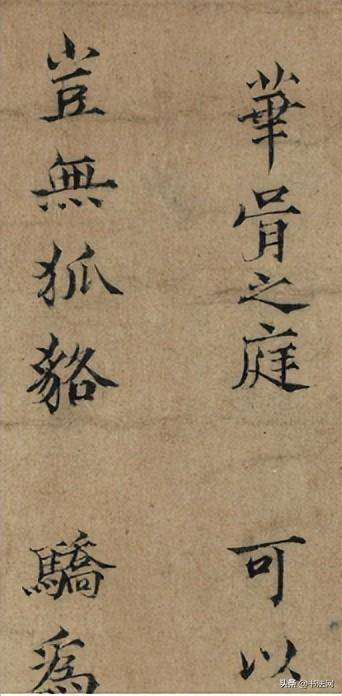 華胥之庭 可以
豈無狐貉 驕爲
头条@书法网